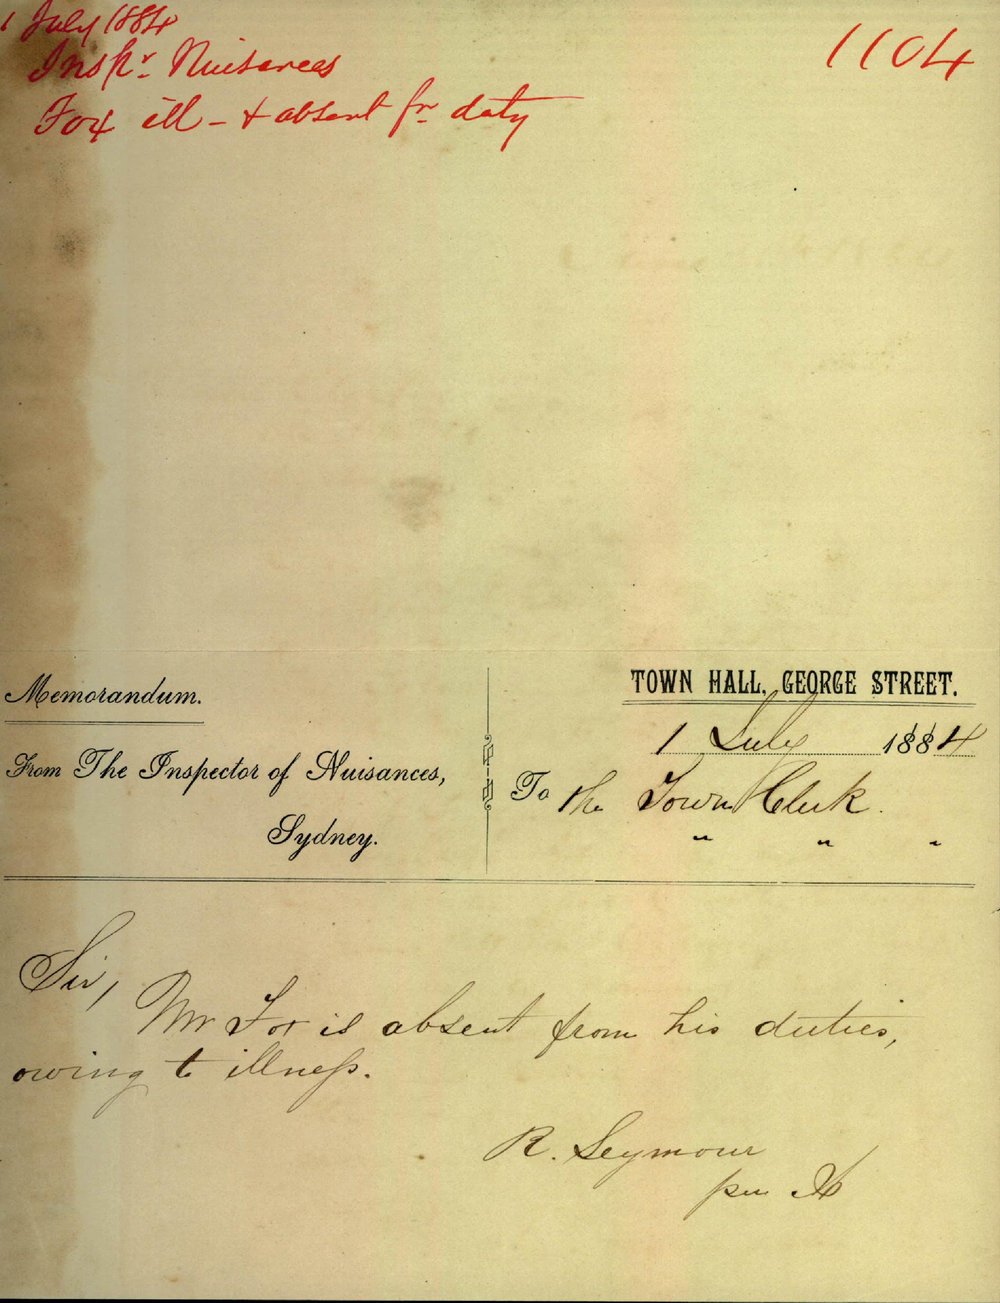 1 July 1884
Inspr. Nuisances
Fox ill - & absent fm duty
1104
Memorandum.
From The Inspector of Nuisances,
Sydney.
TOWN HALL, GEORGE STREET.
1 July 1884
To the Town Clerk.
" " "
Sir,
Mr Fox is absent from his duties,
owing to illness.
R. Seymour
per